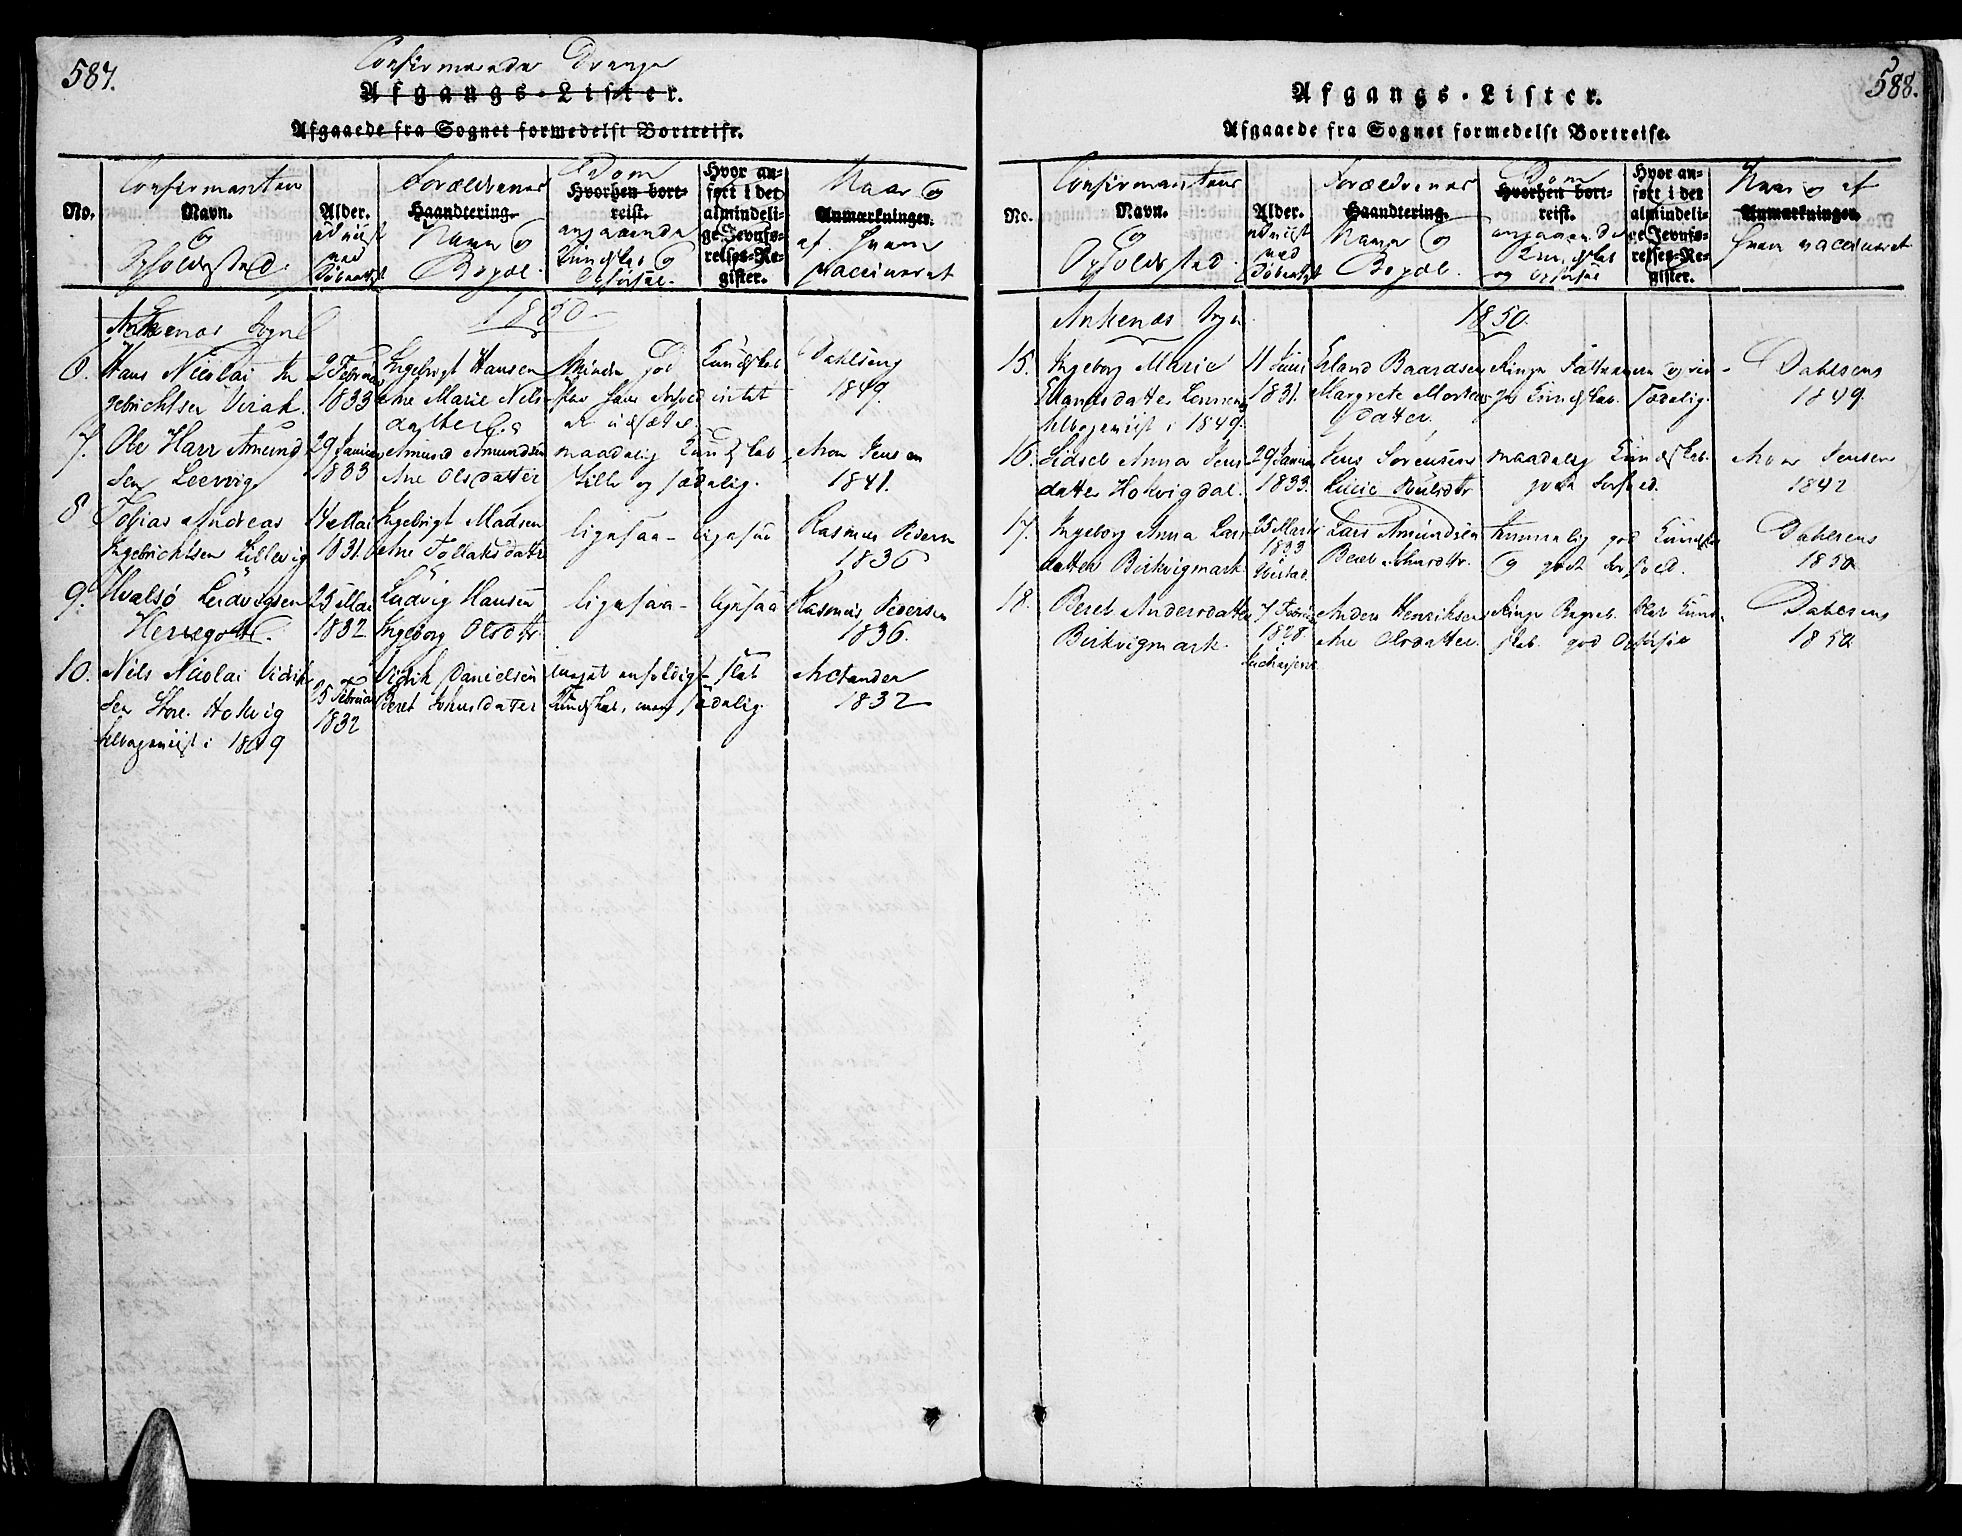 587.
Confirmerede Drenge
Afgangs-Lister.
Afgaaede fra Sognet formedelst Bortreise.
No.
Confirmantens
Navn.
og
Opholdssted.
Alder.
udviist
ved
Døbeattest
Forældrenes
Haandtering.
Navne og
Bopæl.
Dom
Hvorhen bort-
reist.
angaaende
Kundskab og
Opførsel.
Hvor an-
ført i det
almindeli-
ge Jevnfø-
relses-Re-
gister.
Naar og
Anmærkninger.
af hvem
vaccineret
Ankenæs Sogn
1850
6. Hans Nicolai In
gebrichtsen Virak.
2 Februar
1833
Ingebrigt Hansen
Ane Marie Nils-
datter
Minder god Kundskab
Dahlsens
1849.
7. Ole Harr Amund
sen Leervig
29 Januar
1833
Amund Amundsen
Ane Olsdatter
maadelig Kundskab
Stille og sædelig.
Aron Jensen
1841.
8 Tobias Andreas
Ingebrichtsen Lillevig
14 Mai
1831.
Ingebrigt Madsen
Ane Tollaksdatter
ligesaa- ligesaa
Rasmus Pedersen
1836
9. Hvalsø Ludvigsen
Hergot.
25 Mai
1832
Ludvig Hansen
Ingeborg Olsdtr.
ligesaa- ligesaa
Rasmus Pedersen
1836.
10. Nils Nicolai Vidik
sen Store Holvig
tilbageviist i 1849
25 Februar
1832
Vidik Danielsen
Beret Johnsdatter
meget ensfoldig slet
Kundskab, men sædelig.
Actander
1832
588.
Afgangs-Lister.
Afgaaede fra Sognet formedelst Bortreise.
No.
Confirmantens
Navn.
og
Opholdssted.
Alder.
udviist
ved
Døbeattest
Forældrenes
Haandtering.
Navne og
Bopæl.
Dom
Hvorhen bort-
reist.
angaaende
Kundskab
og Opførsel
Hvor an-
ført i det
almindeli-
ge Jevnfø-
relses-Re-
gister.
Naar og af
Anmærkninger.
hvem vaccineret
Ankenæs Sogn
1850.
15. Ingeborg Marie
Erlandsdatter
tilbageviist i 1849.
11 Juni
1831.
Erland Baardsen
Margrete Mortens-
datter.
Ringe Fatteevne og rin-
ge Kundskab. Sædelig.
Dahlsens
1849.
16. Lidsel Anna Jens-
datter Holvigdal.
29 Januar
1833.
Jens Sørensen
Lucie Poulsdtr.
maadelig Kundskab.
godt Forhold.
Aron Jensen
1842
17. Ingeborg Anna Lars
datter Birkvigmark
25 Marts
1833
Lars Amundsen
Beret
temmelig god Kundskab
og godt Forhold.
Dahlsens
1850
18. Beret Andersdatter
Birkvigmark.
7 Februar
1828.
Anders Henriksen
Ane Olsdatter.
Ringe Begreb. Slet Kund-
skab. god Opførsel
Dahlsens
1850